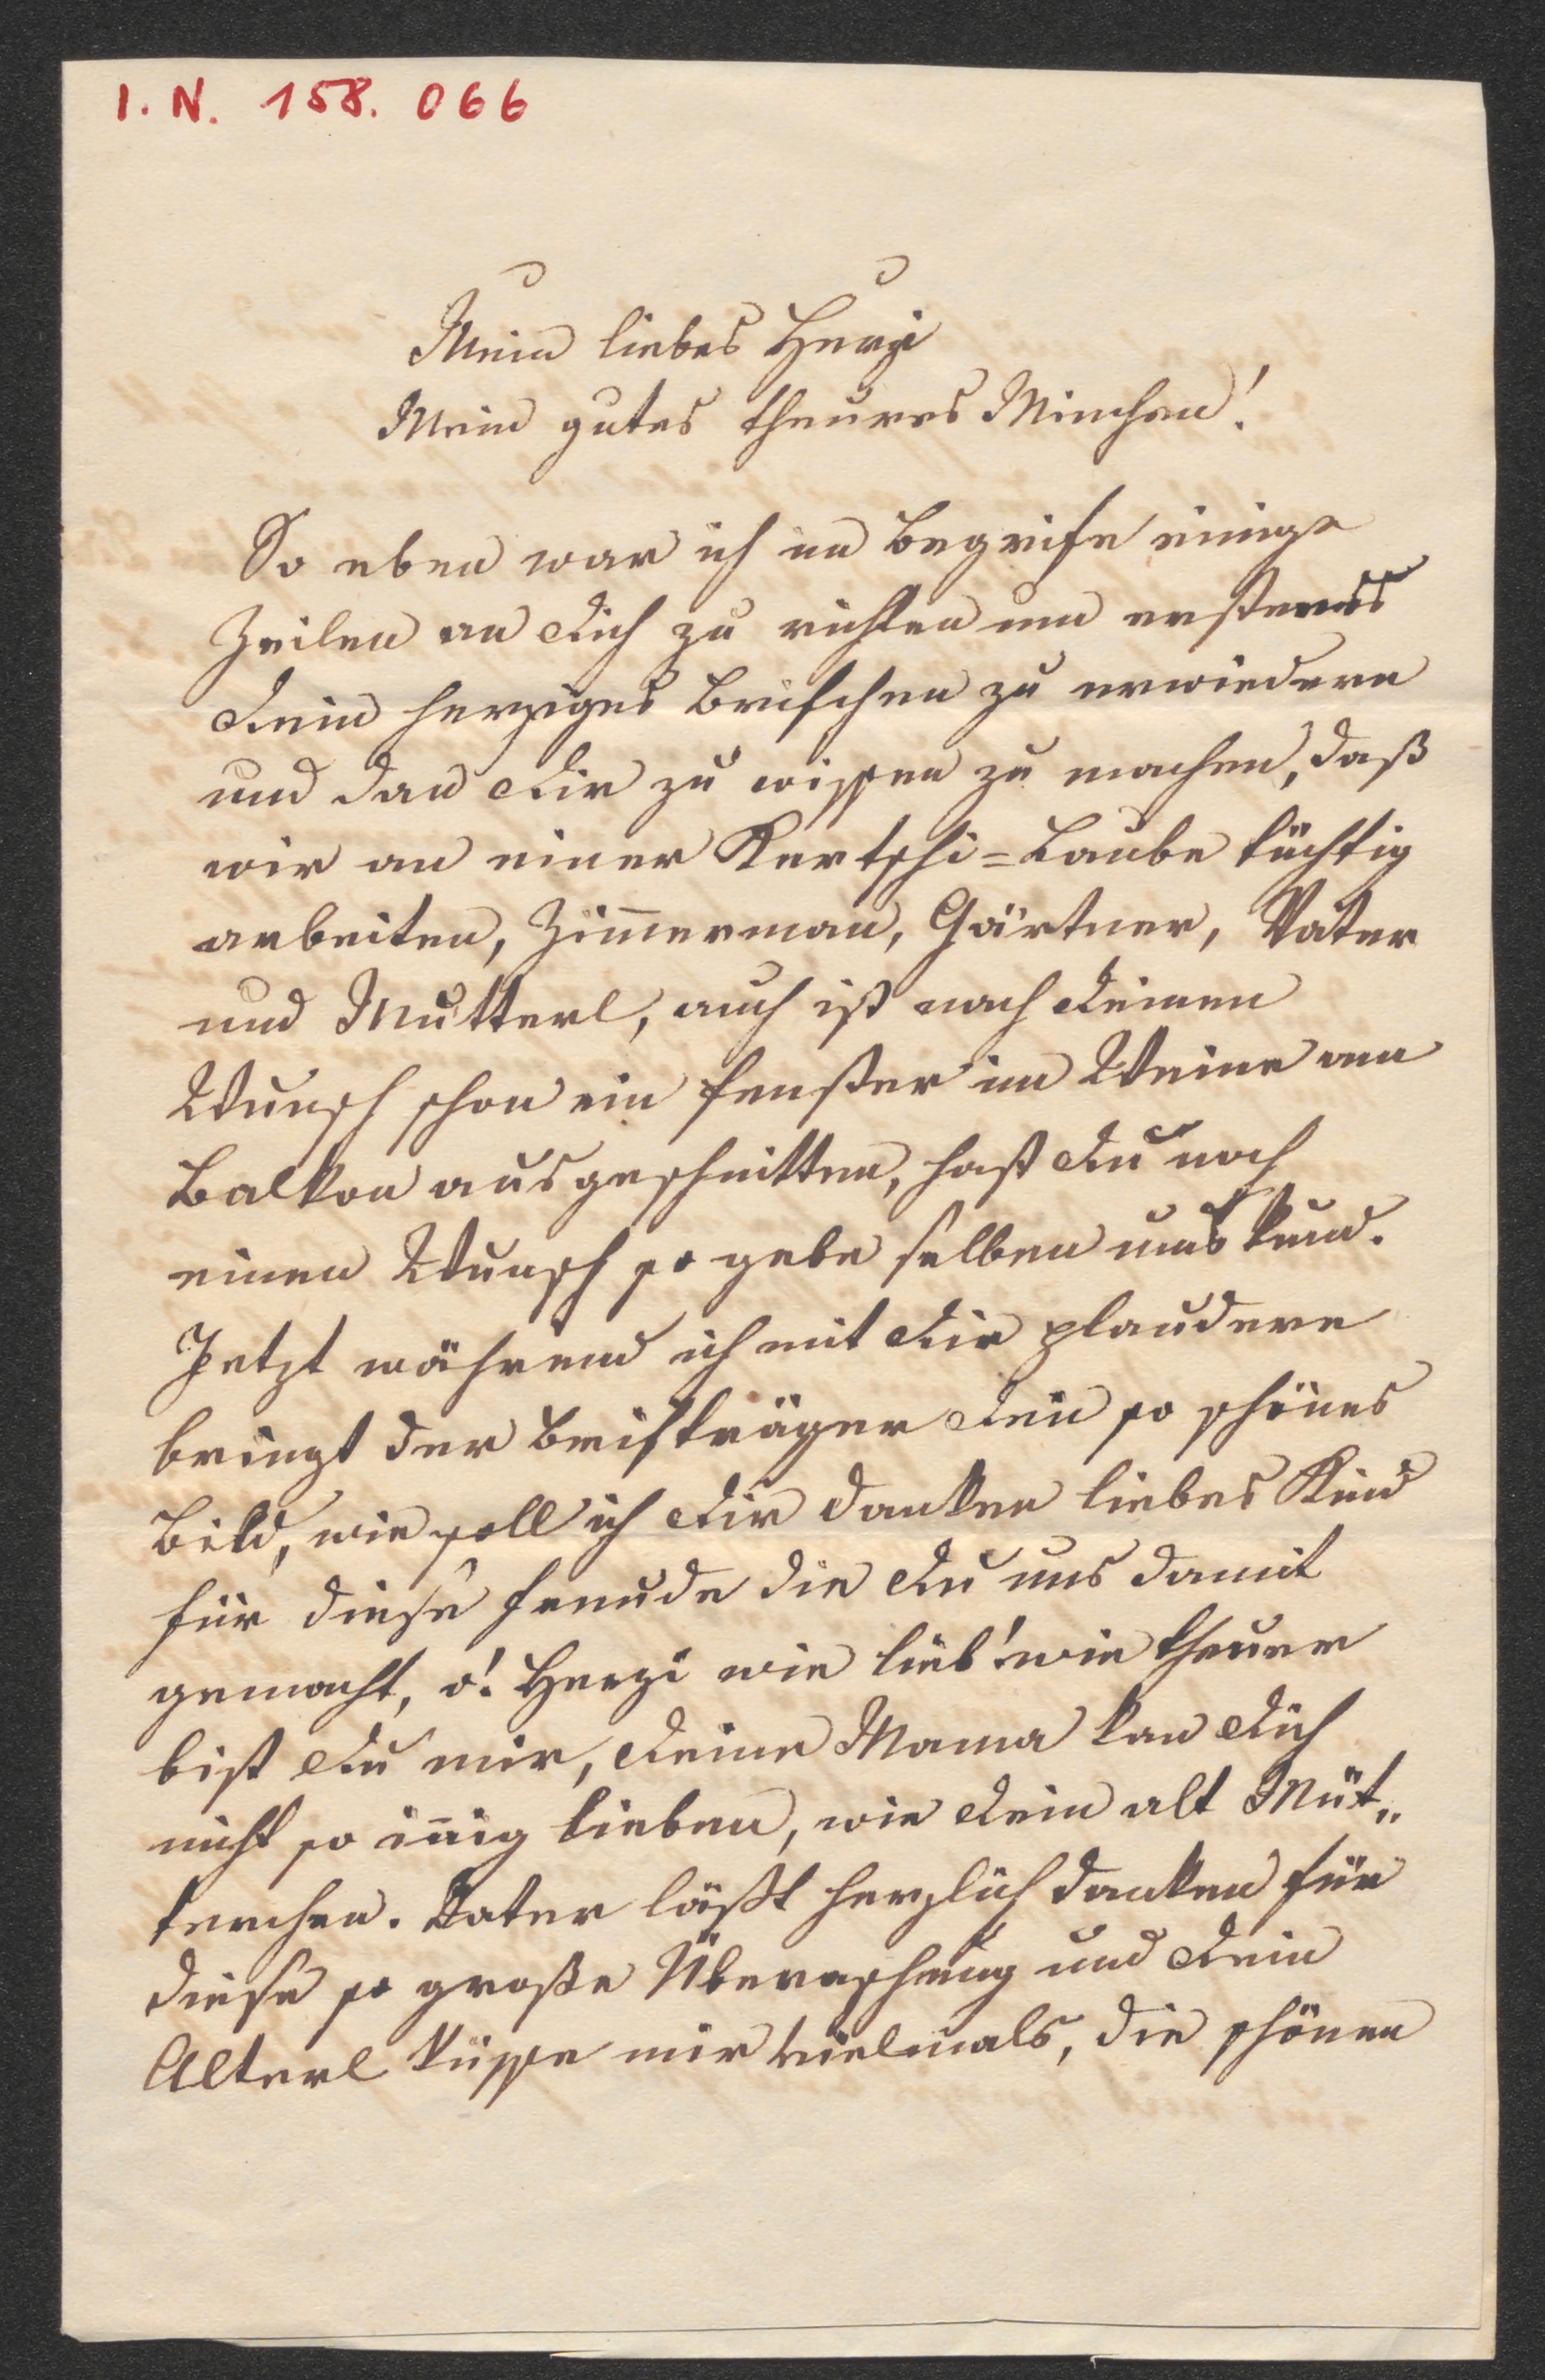 I. N. 158. 066
Mein liebes Herzi
Mein gutes theures Minchen!
So eben war ich im Begrife einige
Zeilen an Dich zu richten um erstens
Dein herziges Briefchen zu erwiedern
und dan Dir zu wissen zu machen, daß
wir an einer Kertschi=Laube tüchtig
arbeiten, Zim̅erman, Gärtner, Vater
und Mutterl, auch ist nach Deinen
Wunsch schon ein Fenster im Weine am
Balkon ausgeschnitten, hast Du noch
einen Wunsch so gebe selben uns kund.
Jetzt während ich mit Dir plaudere
bringt der Briefträger Dein so schönes
Bild, wie soll ich Dir danken liebes Kind
für diese Freude die Du uns damit
gemacht, o! Herzi wie lieb! wie theuer
bist Du mir, Deine Mama kan Dich
nicht so in̅ig lieben, wie Dein alt Müt„
terchen. Vater läßt herzlich danken für
diese so große Überaschung und Dein
Alterl küsse mir vielmals, die schönen